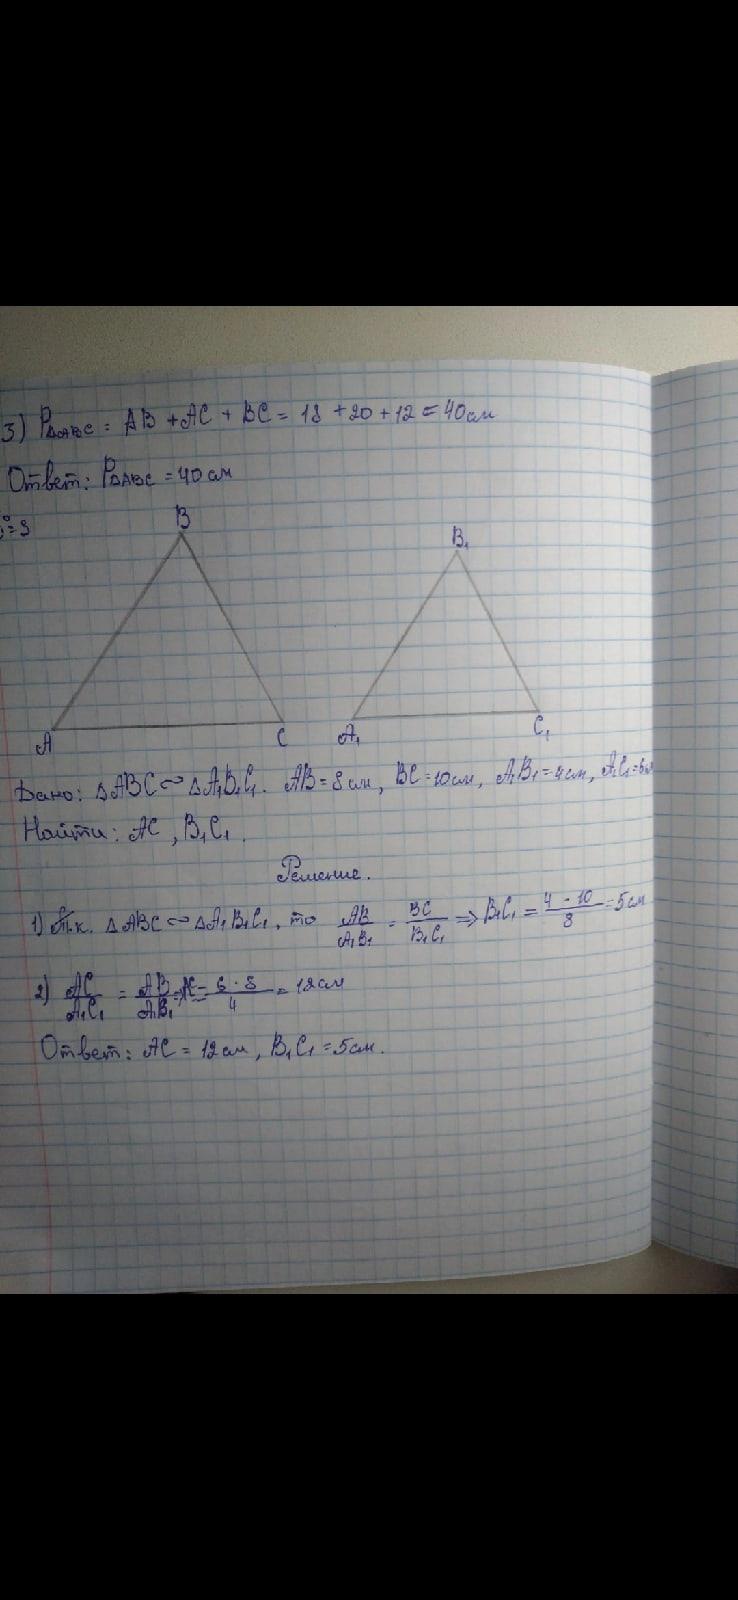 3) P△ABC = AB + AC + BC = 18 + 20 + 12 = 40 см
Ответ: P△ABC = 40 см
B
B₁
A
C
A₁
C₁
Дано: △ABC ∾ △A₁B₁C₁. AB = 8 см, BC = 10 см, A₁B₁ = 4 см, A₁C₁ = 6 см
Найти: AC, B₁C₁.
Решение.
1) Т.к. △ABC ∾ △A₁B₁C₁, то AB/A₁B₁ = BC/B₁C₁ ⇒ B₁C₁ = 4 · 10/8 = 5 см
2) AC/A₁C₁ = AB/A₁B₁ AC = 6 · 8/4 = 12 см
Ответ: AC = 12 см, B₁C₁ = 5 см.